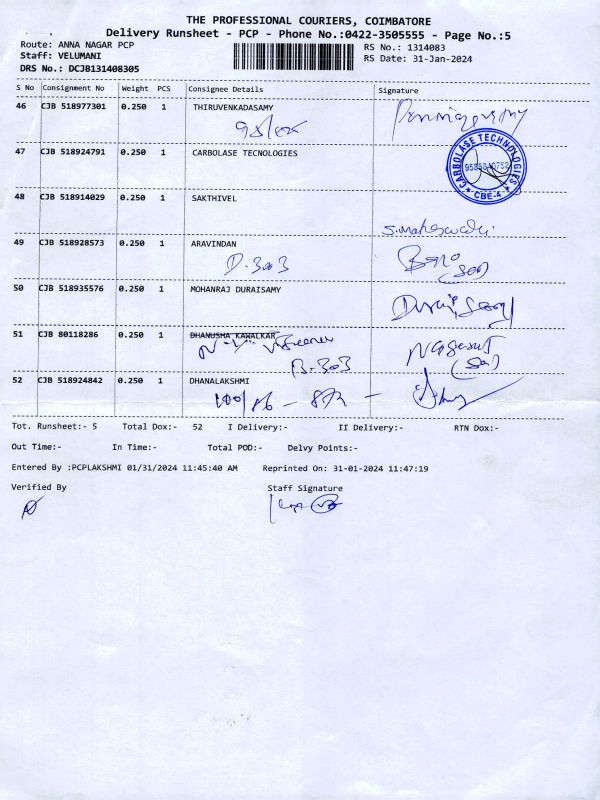 THE PROFESSIONAL COURIERS, COIMBATORE
Delivery Runsheet - PCP - Phone No.:0422-3505555 - Page No.:5
Route: ANNA NAGAR PCP RS No.: 1314083
Staff: VELUMANI RS Date: 31-Jan-2024
DRS No.: DCJB131408305
S No Consignment No Weight PCS Consignee Details Signature
46 CJB 518977301 0.250 1 THIRUVENKADASAMY
47 CJB 518924791 0.250 1 CARBOLASE TECNOLOGIES
CARBOLASE TECHNOLOGIES
CBE-4
48 CJB 518914029 0.250 1 SAKTHIVEL
S. Maheswari
49 CJB 518928573 0.250 1 ARAVINDAN
D.303 (Son)
50 CJB 518935576 1 0.250 MOHANRAJ DURAISAMY
Duraisamy
51 CJB 80118286 0.250 1 DHANUSHA KAWALKAR
B-303
52 CJB 518924842 0.250 1 DHANALAKSHMI
Tot. Runsheet:- 5 Total Dox:- 52 I Delivery:- II Delivery:- RTN Dox:-
Out Time:- In Time:- Total POD:- Delvy Points:-
Entered By :PCPLAKSHMI 01/31/2024 11:45:40 AM Reprinted On: 31-01-2024 11:47:19
Verified By Staff Signature